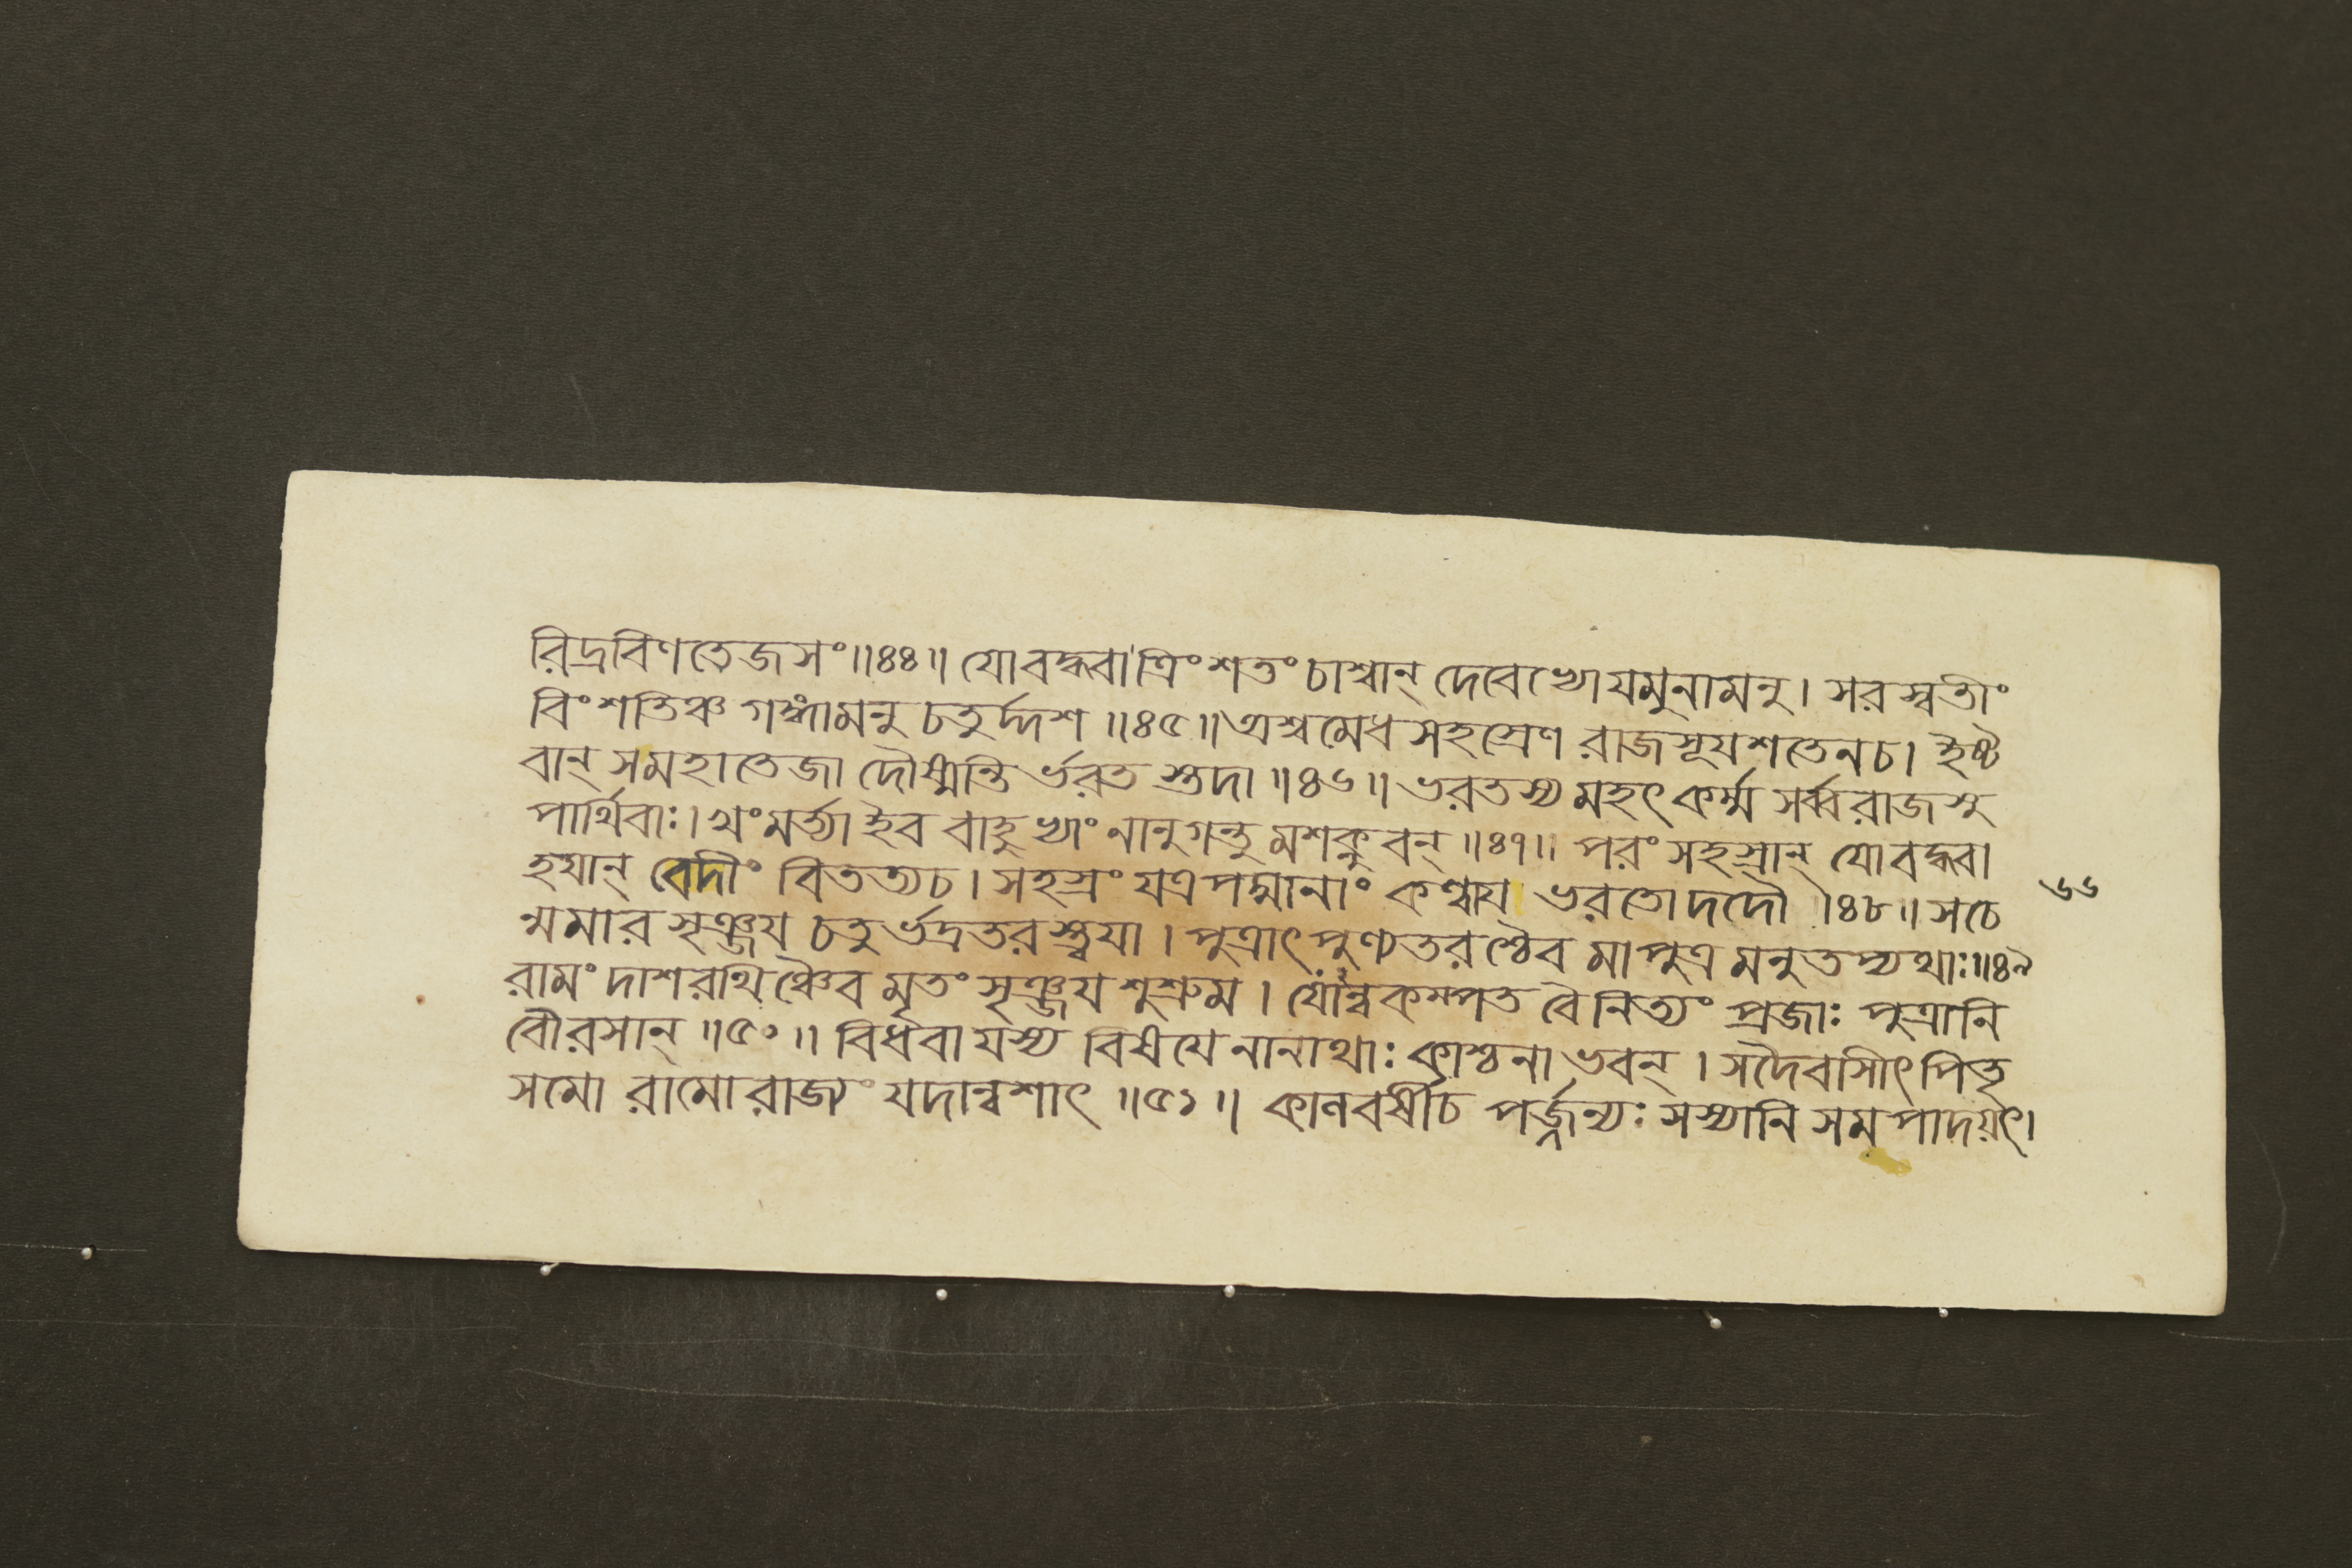 রিদ্রবিণতেজসং॥৪৪॥ যোবদ্ধ্বা ত্রিংশতং চাশ্বান্ দেবেভ্যো যমুনামনু। সরস্বতীং
বিংশতিঞ্চ গঙ্গামনু চতুর্দ্দশ ॥৪৫॥ অশ্বমেধ সহস্রেণ রাজসূযশতেনচ। ইষ্ট
বান্ সমহাতেজা দৌষ্মন্তি র্ভরত স্তদা ॥৪৬॥ ভরতস্য মহৎ কর্ম্ম সর্ব্বরাজসু
পার্থিবাঃ। খংমর্ত্ত্যা ইব বাহুভ্যাং নানুগন্তু মশক্নুবন্ ॥৪৭॥ পরং সহস্রান্ যোবদ্ধ্বা
হযান্ বেদীং বিতত্যচ। সহস্রং যত্রপদ্মানাং কণ্বায ভরতো দদৌ ।৪৮॥ সচে
ন্মমার সৃঞ্জয চতুর্ভদ্রতর স্ত্বযা । পুত্রাৎ পুণ্যতরশ্চৈব মাপুত্র মনুতপ্যথাঃ॥৪৯
রামং দাশরথিঞ্চৈব মৃতং সৃঞ্জয শুশ্রুম । যোন্বকম্পত বৈনিত্যং প্রজাঃ পুত্রানি
বৌরসান্ ॥৫০॥ বিধবা যস্য বিষযে নানাথাঃ কাশ্চনা ভবন্ । সদৈবাসীৎ পিতৃ
সমো রামোরাজ্যং যদান্বশাৎ ॥৫১॥ কালবর্ষীচ পর্জ্জন্যঃ সস্যানি সমপাদয়ৎ।
৬৬